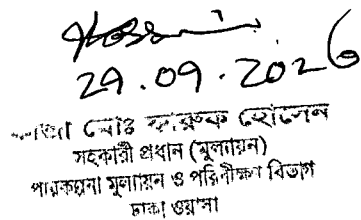 29.09.2026
মোঃ ফারুক হোসেন
সহকারী প্রধান (মূল্যায়ন)
পরিকল্পনা মূল্যায়ন ও পরিবীক্ষণ বিভাগ
ঢাকা ওয়াসা